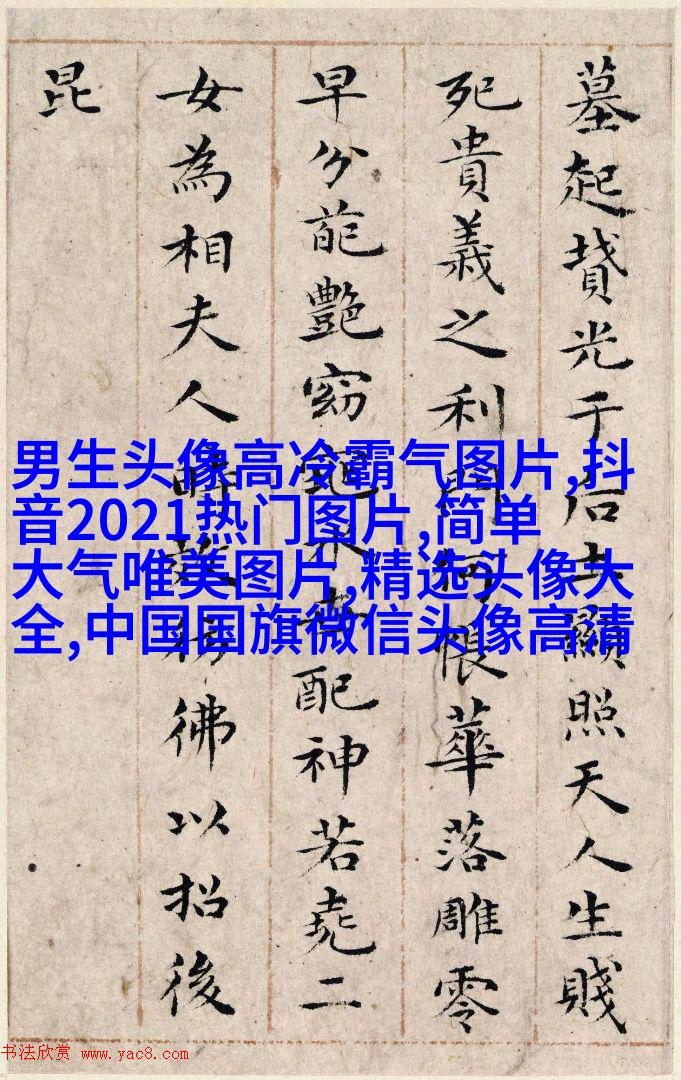 墓起墳光于后土顯照天人生賤
死貴義之利門何悵華落雕零
早分葩艷窈窕永世配神若堯二
女為相夫人時效彷彿以招後
昆
男生头像高冷霸气图片,抖
音2021热门图片,简单
大气唯美图片,精选头像大
全,中国国旗微信头像高清
书法欣赏 www.yac8.com